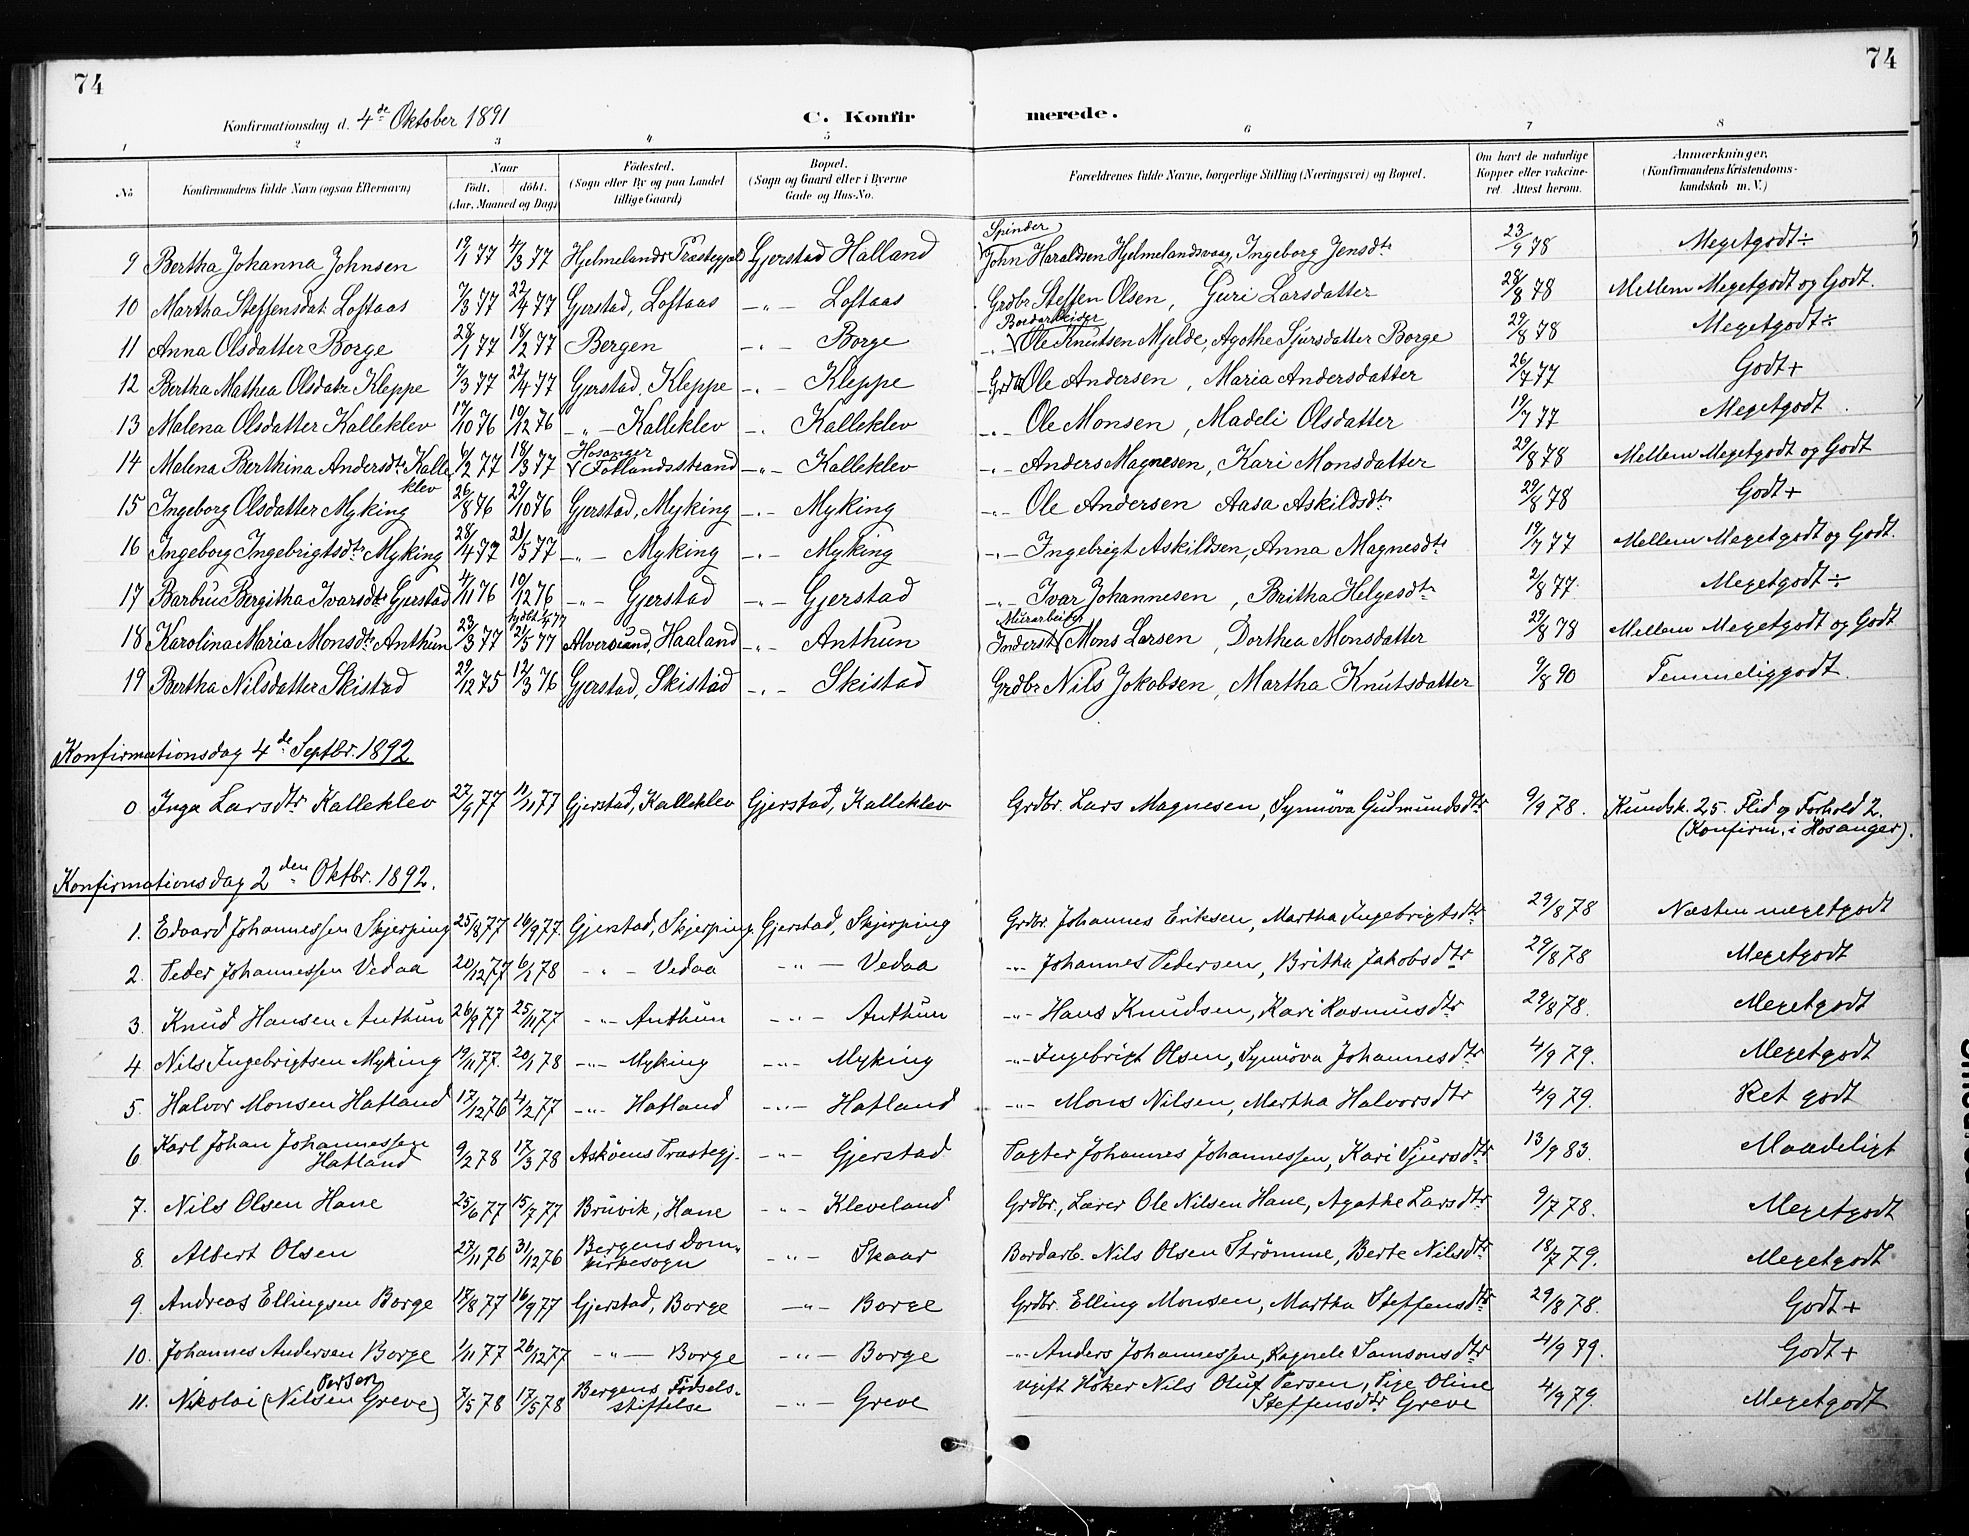 74
74
Konfirmationsdag d. 4de Oktober 1891
C. Konfir
merede.
1 2 3 4 5 6 7 8
No. Konfirmandens fulde Navn (ogsaa Efternavn) Naar födt. döbt. (Aar, Maaned og Dag) Födested. (Sogn eller By og paa Landet tillige Gaard) Bopæl. (Sogn og Gaard eller i Byerne Gade og Hus-No. Forældrenes fulde Navne, borgerlige Stilling (Næringsvei) og Bopæl. Om havt de naturlige Kopper eller vakcineret. Attest herom. Anmærkninger. (Konfirmandens Kristendomskundskab m. V.)
9 Bertha Johanna Johnsen 19/1 77 4/3 77 Hjelmelands Præstegjæld Gjerstad Halland Spinder John Haraldsen Hjelmelandsvaag, Ingeborg Jensdtr 23/9 78 Megetgodt ÷
10 Martha Steffensdat. Loftaas 7/3 77 22/4 77 Gjerstad, Loftaas -"- Loftaas Grdbr Steffen Olsen, Guri Larsdatter 28/8 78 Mellem Megetgodt og Godt.
11 Anna Olsdatter Borge 28/1 77 18/2 77 Bergen -"- Borge Bordarbeider -"- Ole Knutsen Mjelde, Agothe Sjursdatter Borge 29/8 78 Megetgodt ÷
12 Bertha Mathea Olsdatr Kleppe 7/3 77 22/4 77 Gjerstad, Kleppe -"- Kleppe Grdbr Ole Andersen, Maria Andersdatter 26/7 77 Godt +
13 Malena Olsdatter Kalleklev 17/10 76 10/12 76 -"- Kalleklev -"- Kalleklev -"- Ole Monsen, Madeli Olsdatter 19/7 77 Megetgodt
14 Malena Berthina Andersdtr Kalleklev 6/2 77 18/3 77 Hosanger Follandsstrand -"- Kalleklev -"- Anders Magnesen, Kari Monsdatter 29/8 78 Mellem Megetgodt og Godt
15 Ingeborg Olsdatter Myking 26/8 76 29/10 76 Gjerstad, Myking -"- Myking -"- Ole Andersen Aasa Askildsdtr 29/8 78 Godt +
16 Ingeborg Ingebrigtsdtr Myking 28/4 77 21/5 77 -"- Myking -"- Myking -"- Ingebrigt Askildsen, Anna Magnesdtr 19/7 77 Mellem Megetgodt og Godt.
17 Barbru Bergitha Ivarsdtr Gjerstad 4/11 76 10/12 76 -"- Gjerstad -"- Gjerstad -"- Ivar Johannesen, Britha Helgesdtr 2/8 77. Megetgodt ÷
18 Karolina Maria Monsdtr Anthun 23/3 77 21/5 77 Alversund, Haaland -"- Anthun Murarbeider Inderst Mons Larsen, Dorthea Monsdatter 29/8 78 Mellem Megetgodt og Godt
19 Bertha Nilsdatter Skistad 29/12 75 12/3 76 Gjerstad, Skistad -"- Skistad Grdbr Nils Jokobsen, Martha Knutsdatter 9/8 90 Temmeliggodt.
Konfirmationsdag 4de Septbr. 1892
0 Inga Larsdtr Kalleklev 27/9 77 11/11 77 Gjerstad, Kalleklev Gjerstad, Kalleklev Grdbr. Lars Magnesen, Synnöva Gudmundsdtr 9/9 78. Kundsk. 2,5. Flid og Forhold 2.
(Konfirm. i Hosanger).
Konfirmationsdag 2den Oktbr. 1892.
1. Edvard Johannessen Skjerping 25/8 77 16/9 77. Gjerstad, Skjerping. Gjerstad, Skjerping Grdbr. Johannes Eriksen, Martha Ingebrigtsdtr 29/8 78 Næsten megetgodt
2. Peder Johannessen Vedaa 20/12 77 6/1 78 -"- Vedaa -"- Vedaa -"- Johannes Pedersen, Britha Jakobsdtr 29/8 78 Megetgodt
3. Knud Hansen Anthun 26/9 77 25/11 77 -"- Anthun -"- Anthun -"- Hans Knudsen, Kari Rasmusdtr 29/8 78. Megetgodt
4 Nils Ingebrigtsen Myking 19/11 77. 20/1 78 -"- Myking -"- Myking -"- Ingebrigt Olsen, Synnöva Johannesdtr 4/9 79. Megetgodt
5. Halvor Monsen Hatland 17/12 76 4/2 77 -"- Hatland -"- Hatland -"- Mons Nilsen, Martha Halvorsdtr 4/9 79. Ret godt
6 Karl Johan Johannessen Hatland 9/2 78 17/3 78 Asköens Præstegj. -"- Gjerstad Pagter Johannes Johannessen, Kari Sjursdtr 13/9 83. Maadeligt
7. Nils Olsen Hane 25/6 77 15/7 77 Bruvik, Hane -"- Kleveland Grdbr., Lærer Ole Nilsen Hane, Agathe Larsdtr 9/7 78. Megetgodt
8. Albert Olsen 27/11 76 31/12 76 Bergens Domkirkesogn -"- Skaar Bordarb. Nils Olsen Strömme, Berte Nilsdtr 18/7 79. Megetgodt
9. Andreas Ellingsen Borge 17/8 77 16/9 77 Gjerstad, Borge -"- Borge Grdbr. Elling Monsen, Martha Steffensdtr 29/8 78. Godt +
10. Johannes Andersen Borge 1/11 77 26/12 77 -"- Borge -"- Borge -"- Anders Johannessen, Ragnele Samsonsdtr 4/9 79. Godt +
11. Nikolai (Nilsen Persen Greve) 7/5 78 17/5 78 Bergens Födselsstiftelse -"- Greve Ugift Höker Nils Oluf Persen, Pige Oline Steffensdtr Greve 4/9 79. Megetgodt